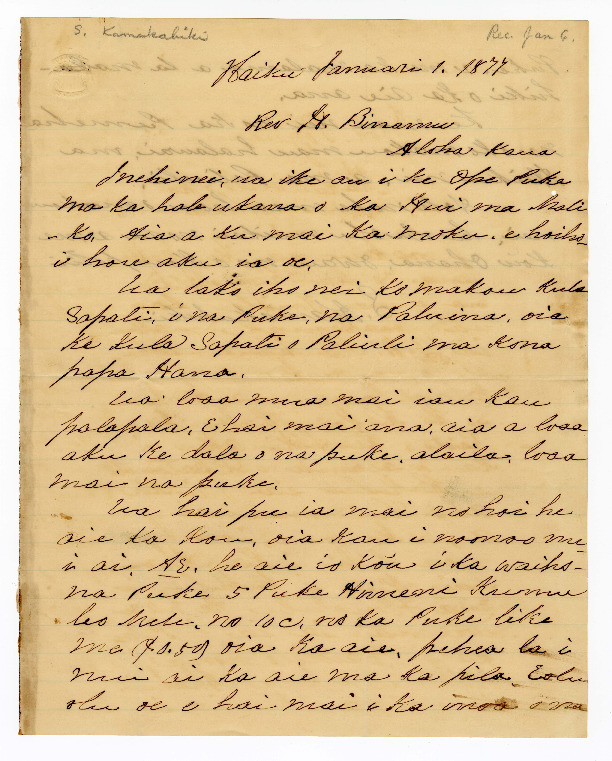 S. Kamakahiki
Rec. Jan 6.
Haiku Januari 1. 1877
Rev. H. Binamu
Aloha Kaua
Inehinei, ua ike au i ke Ope Puke
ma ka hale ukana o ka Hui ma Mali-
-ko. Aia a Ku mai Ka Moku. e hoiho-
i hou aku ia oe.
Ua lako iho nei Ko makou Kula
Sapati, i na Puke, na Paluina, oia
ke Kula Sapati o Paliuli ma Kona
papa Hana.
Ua loaa mua mai iau Kau
palapala, E hai mai ana, aia a loaa
aku Ke dala o na puke, alaila, loaa
mai na puke.
Ua hai pu ia mai no hoi he
aie Ka Kou, oia Kau i noonoo me
i ai. AE. he aie io Kou i ka waiho-
na Puke 5 Puke Himeni Kumu
leo Mele, no 10 c. no Ka Puke like
me ($0.50) oia Ka aie, pehea la i
nui ai Ka aie ma Ka pila, Eolu
olu oe e hai mai i Ka inoa o na